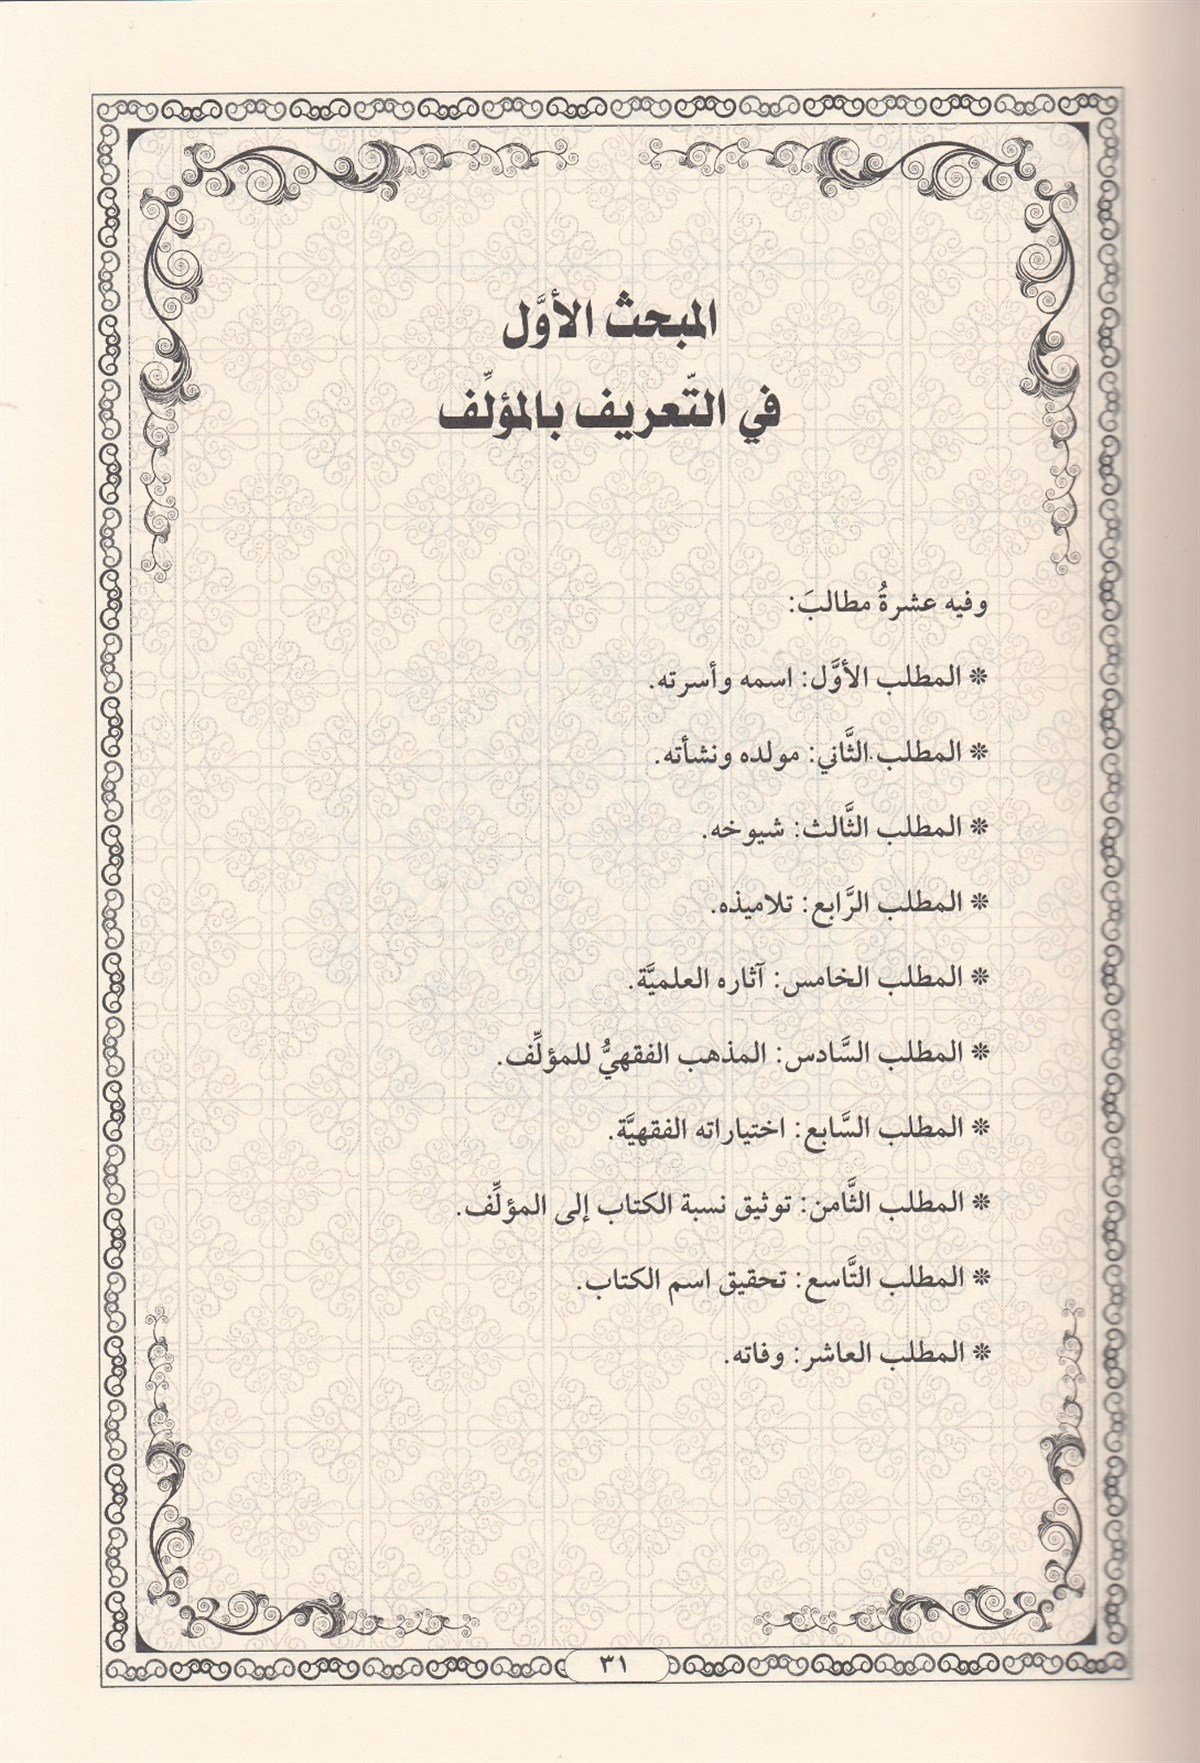 المبحث الأوَّل
في التّعريف بالمؤلِّف
وفيه عشرةُ مطالبَ:
❊ المطلب الأوَّل: اسمه وأسرته.
❊ المطلب الثَّاني: مولده ونشأته.
❊ المطلب الثَّالث: شيوخه.
❊ المطلب الرَّابع: تلاميذه.
❊ المطلب الخامس: آثاره العلميَّة.
❊ المطلب السَّادس: المذهب الفقهيُّ للمؤلِّف.
❊ المطلب السَّابع: اختياراته الفقهيَّة.
❊ المطلب الثَّامن: توثيق نسبة الكتاب إلى المؤلِّف.
❊ المطلب التَّاسع: تحقيق اسم الكتاب.
❊ المطلب العاشر: وفاته.
٣١